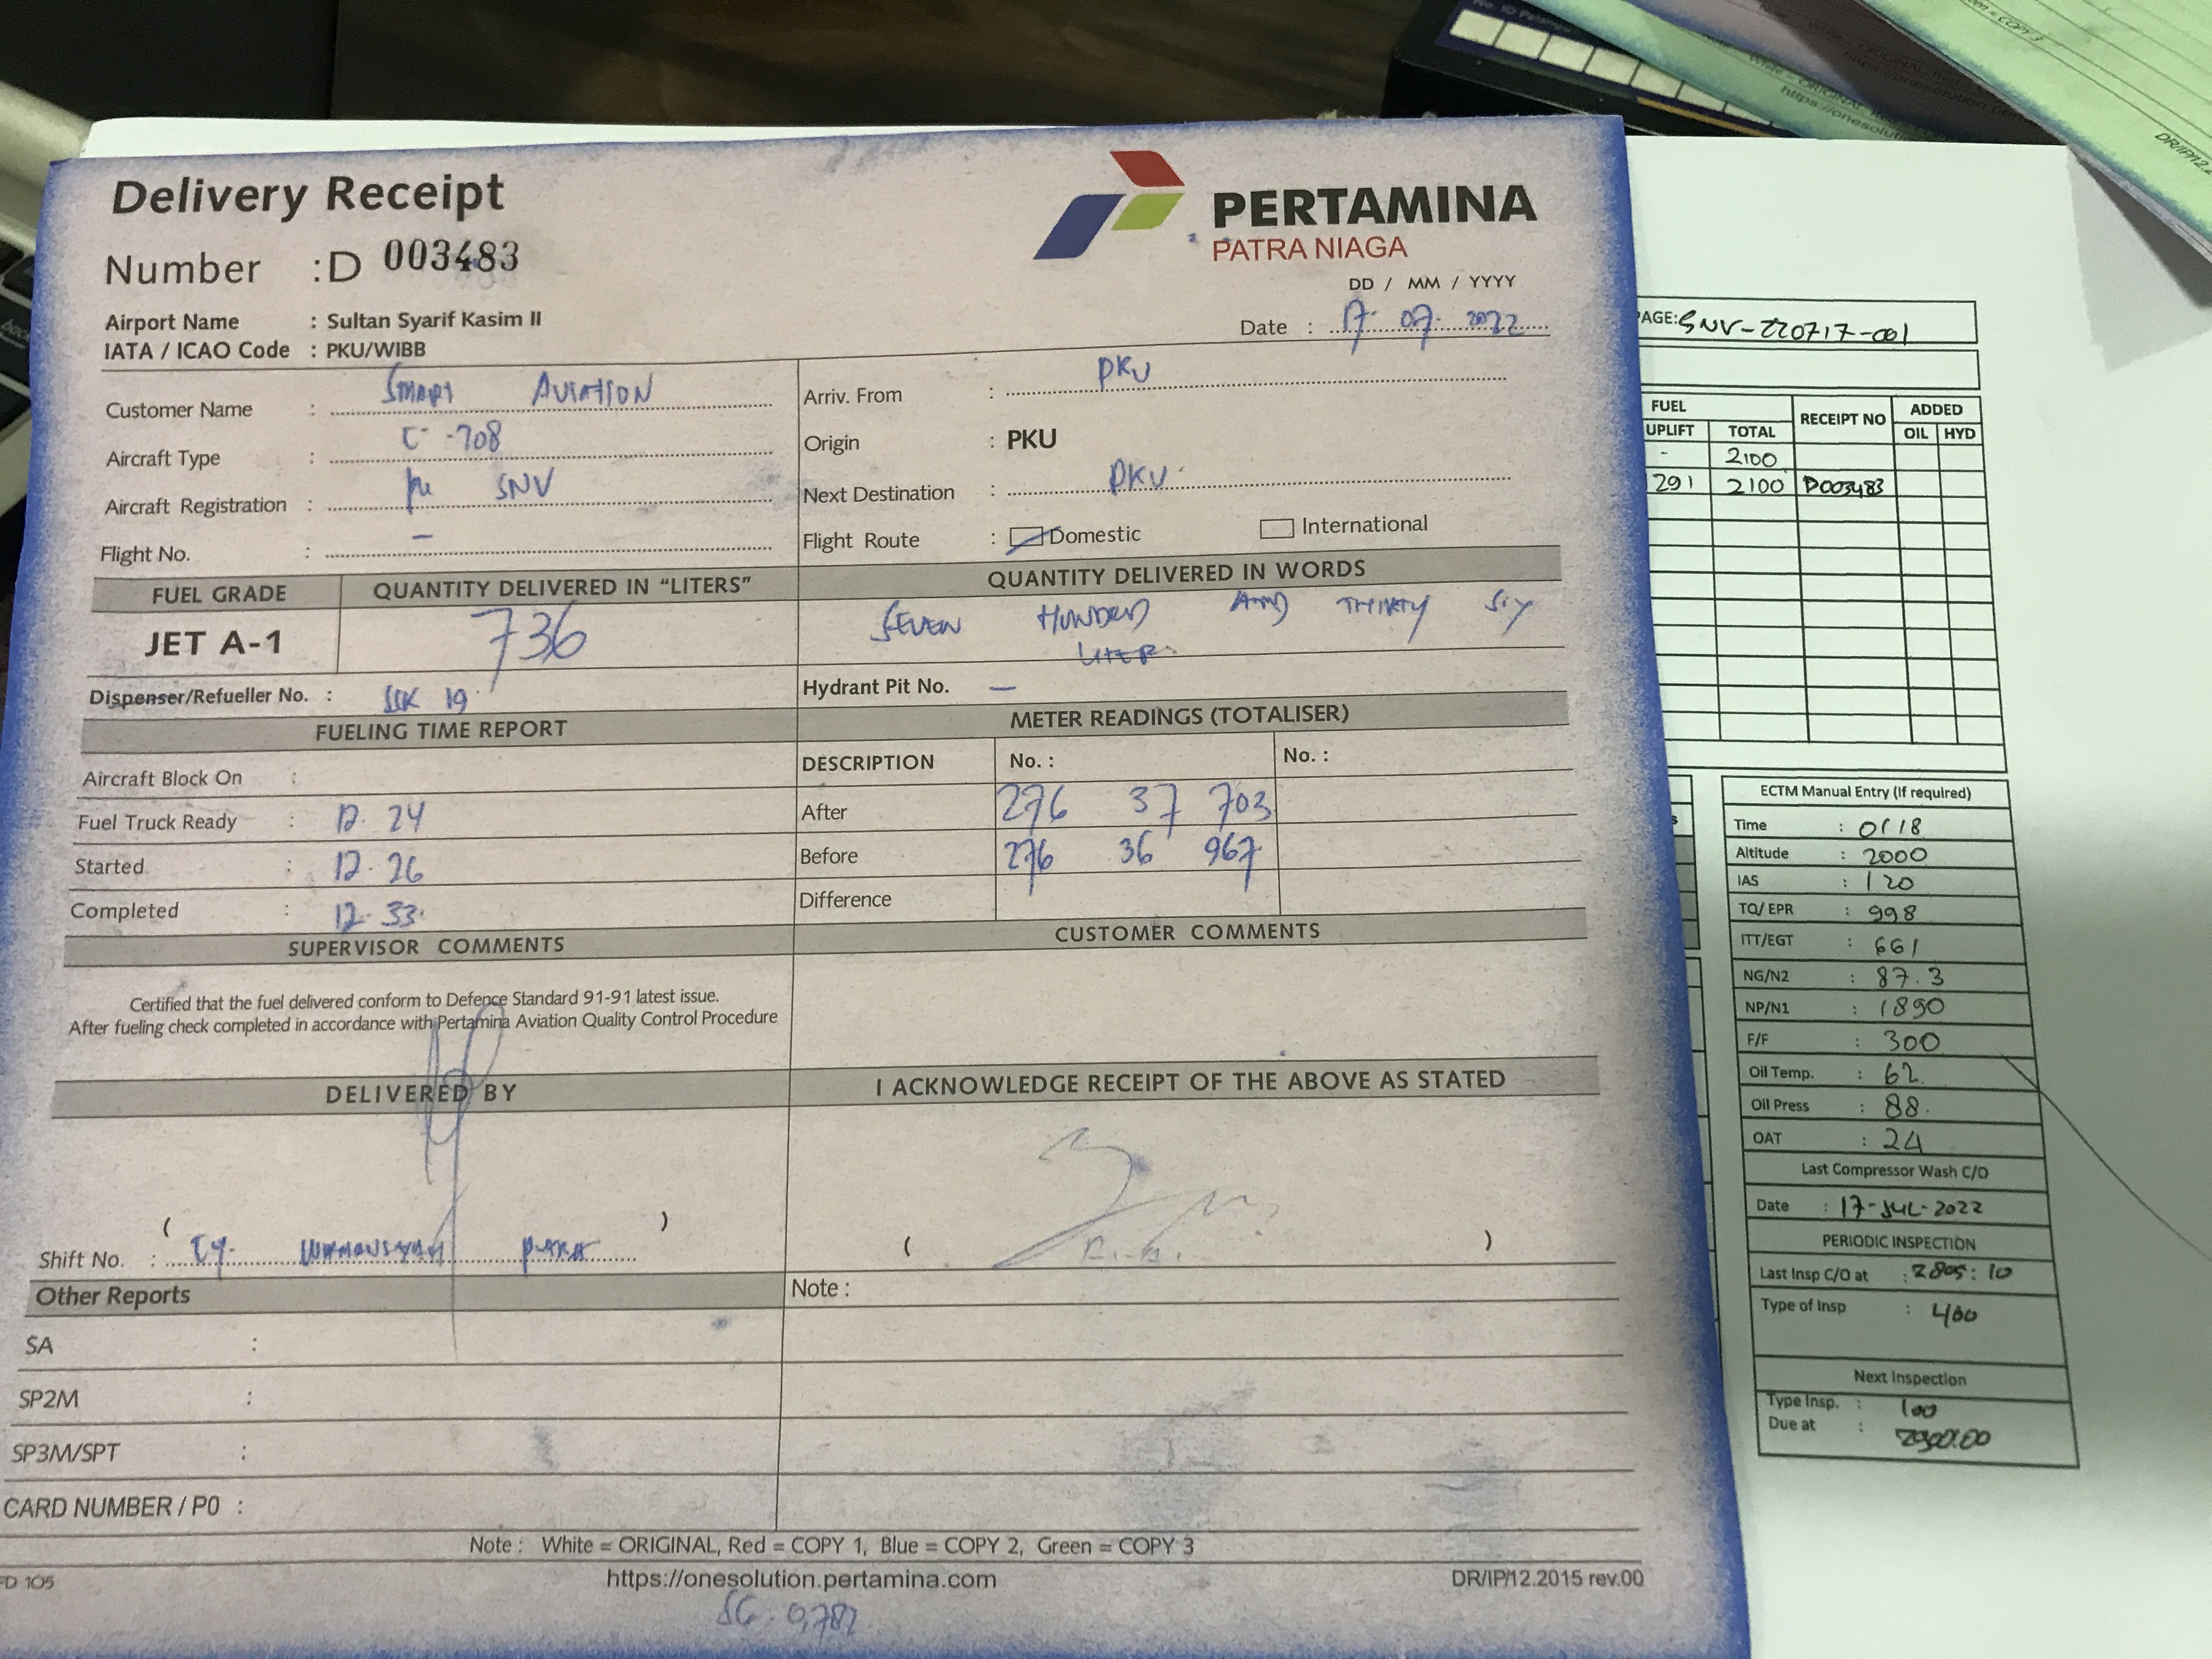 Delivery Receipt
Number : D 003483
PERTAMINA
PATRA NIAGA
DD / MM / YYYY
Date : 17 07 2022
Airport Name : Sultan Syarif Kasim II
IATA / ICAO Code : PKU/WIBB
Customer Name : SMART AVIATION
Aircraft Type : C -708
Aircraft Registration : PK SNV
Flight No. : –
Arriv. From : PKU
Origin : PKU
Next Destination : PKU
Flight Route : Domestic International
FUEL GRADE QUANTITY DELIVERED IN "LITERS" QUANTITY DELIVERED IN WORDS
JET A-1 736 SEVEN HUNDRED AND THIRTY SIX
LITER
Dispenser/Refueller No. : SSK 19 Hydrant Pit No. –
FUELING TIME REPORT
Aircraft Block On :
Fuel Truck Ready : 12. 24
Started : 12. 26
Completed : 12. 33
METER READINGS (TOTALISER)
DESCRIPTION No. : No. :
After 276 37 703
Before 276 36 967
Difference
SUPERVISOR COMMENTS CUSTOMER COMMENTS
Certified that the fuel delivered conform to Defence Standard 91-91 latest issue.
After fueling check completed in accordance with Pertamina Aviation Quality Control Procedure
DELIVERED BY I ACKNOWLEDGE RECEIPT OF THE ABOVE AS STATED
( )
Shift No. :
( )
Other Reports Note :
SA :
SP2M :
SP3M/SPT :
CARD NUMBER / PO :
Note : White = ORIGINAL, Red = COPY 1, Blue = COPY 2, Green = COPY 3
FD 105 https://onesolution.pertamina.com DR/IP/12.2015 rev.00
SG. 0,782
PAGE: SNV-220717-001
FUEL RECEIPT NO ADDED
UPLIFT TOTAL OIL HYD
- 2100
291 2100 D003483
ECTM Manual Entry (If required)
Time : 0118
Altitude : 2000
IAS : 120
TQ/ EPR : 998
ITT/EGT : 661
NG/N2 : 87.3
NP/N1 : 1890
F/F : 300
Oil Temp. : 62
Oil Press : 88
OAT : 24
Last Compressor Wash C/O
Date : 17-JUL-2022
PERIODIC INSPECTION
Last Insp C/O at : 2805:10
Type of Insp : 400
Next Inspection
Type Insp. : 100
Due at :